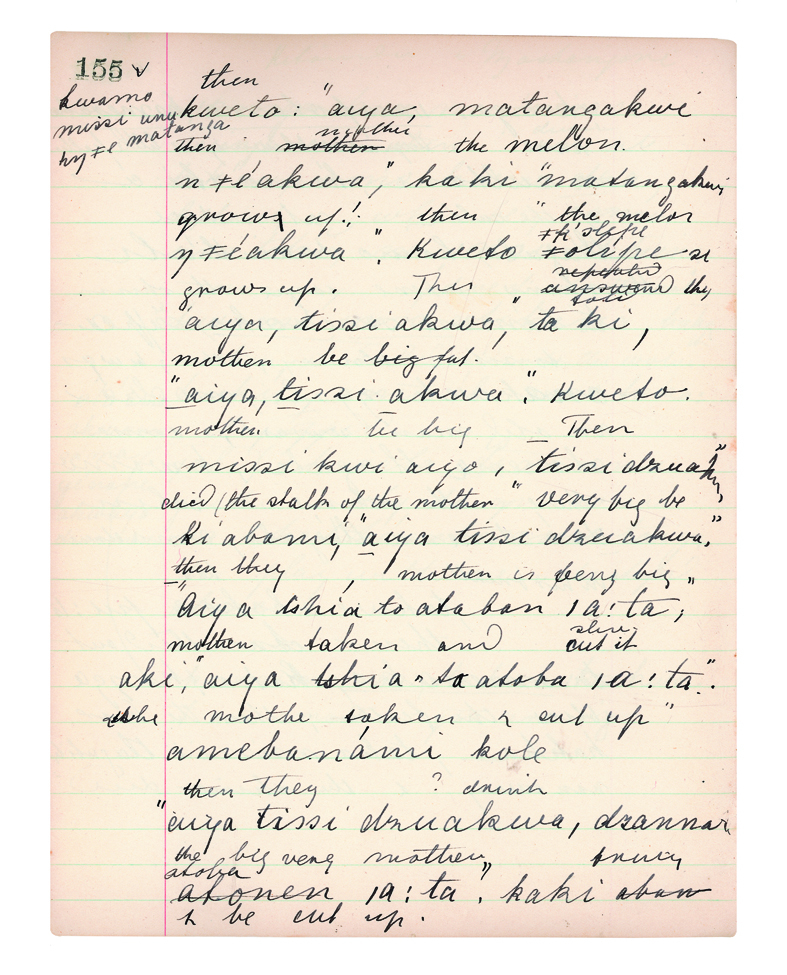 155 ✓
then
kwamo
missi
matanga
kweto: "aiya, matangakwi
mother
then mother the melon.
n ≠éakwa," kaki "matangakwi
grows up! then "the melon
≠k'slope
η ≠éakwa". Kweto ≠olipe si
repeated
grows up. Then answered they
told
aiya, tissi akwa," ta ki,
mother be big fat.
"aiya, tissi akwa". Kweto.
mother be big Then
missi kwi aiyo, tissi dzuakwa,"
died (the stalk of the mother" very big be
ki abami, "aiya tissi dzuakwa,"
then they , mother is very big "
"Aiya tshia to ataban |a: ta;
slice
mother taken and cut it
aki, "aiya tshia to atoba |a: ta".
mothe taken & cut up"
amebanámi kole
then they ? drink
"aiya tissi dzuakwa, dzannar
the big very mother,
atoba
atonen |a: ta". kaki abaw
& be cut up.